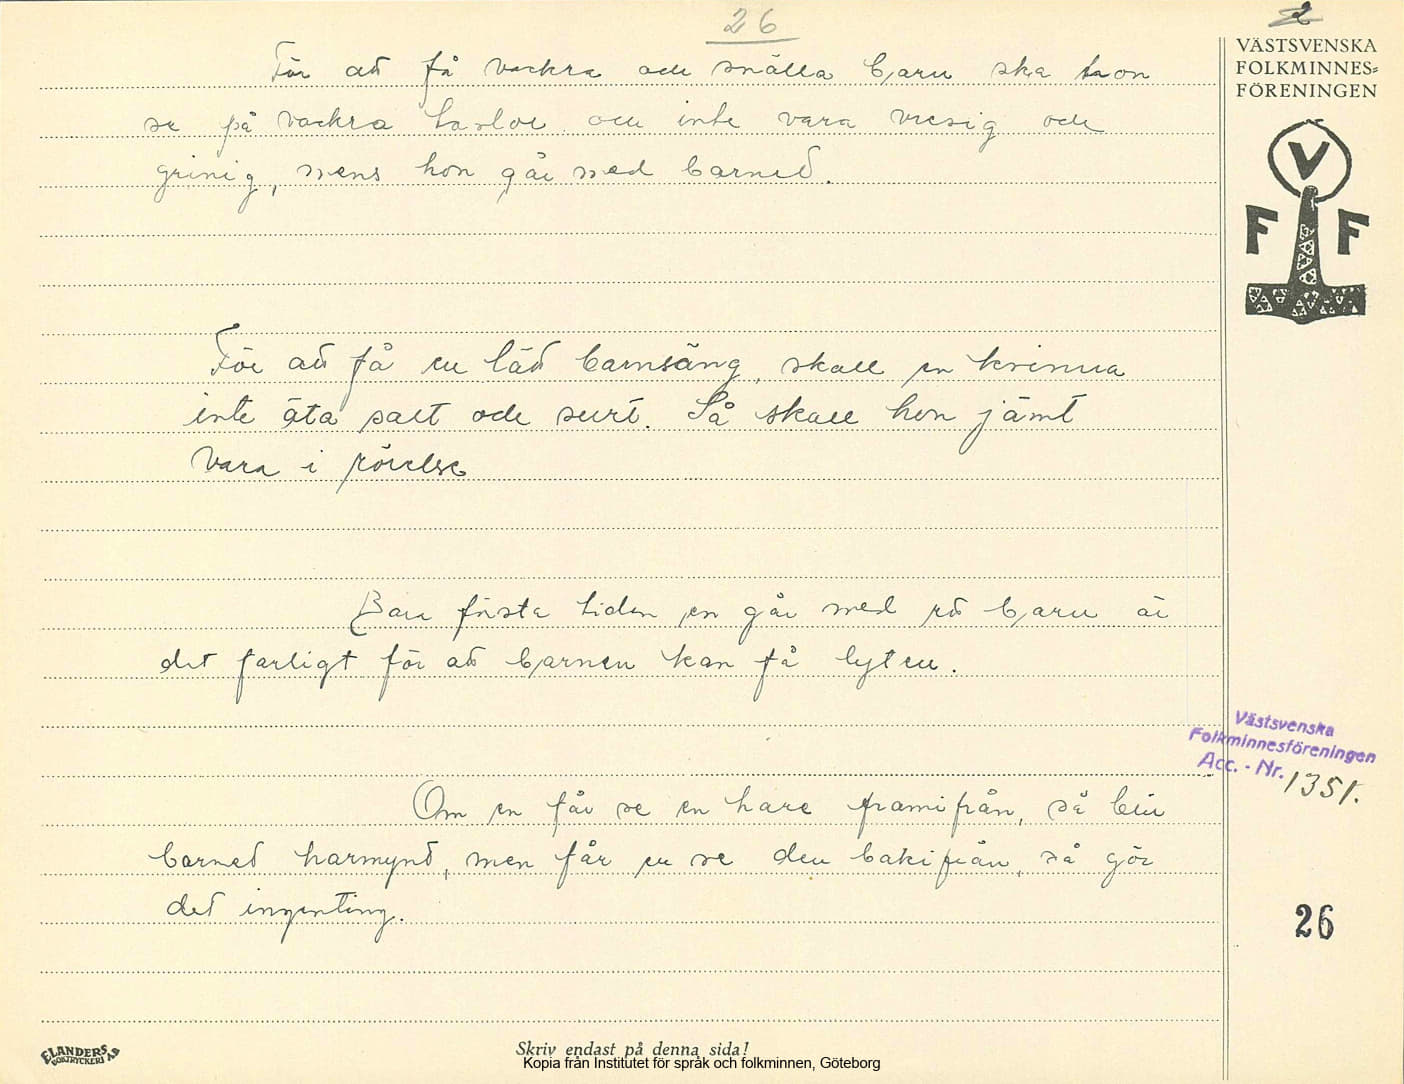 26
2
VÄSTSVENSKA
FOLKMINNES=
FÖRENINGEN
För att få vackra och snälla barn ska hon
se på vackra tavlor och inte vara vresig och
grinig, mens hon går med barned.
V
F F
För att få en lätt barnsäng, skall en kvinna
inte äta salt och surt. Så skall hon jämt
vara i rörelse
Bara första tiden en går med ett barn är
det farligt för att barnen kan få lyten.
Västsvenska
Folkminnesföreningen
Acc. - Nr. 1351.
Om en får se en hare framifrån, så blir
barnet harmynt, men får en se den bakifrån, så gör
det ingenting.
26
ELANDERS
BOKTRYCKERI AB
Skriv endast på denna sida!
Kopia från Institutet för språk och folkminnen, Göteborg